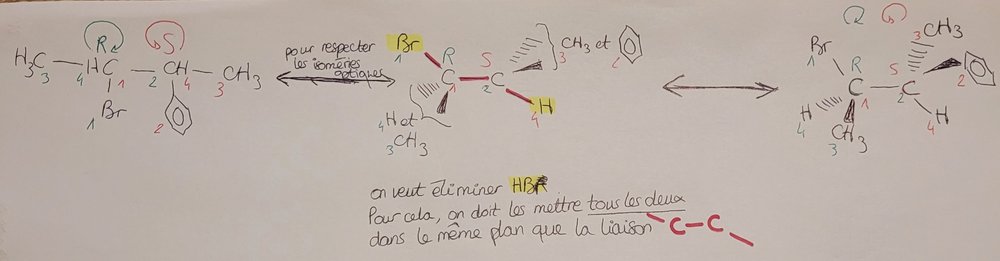 R S
H₃C — HC — CH — CH₃
3 4 1 2 4 3
Br
1 2
pour respecter
les isoméries
optiques
Br R S CH₃ et
1 3 2
C — C
1 2
H
4
4 H et
3 CH₃
3 CH₃
Br R S
1 2
C — C
1 2
H H
4 4
CH₃
3
on veut éliminer HBr
Pour cela, on doit les mettre tous les deux
dans le même plan que la liaison C-C